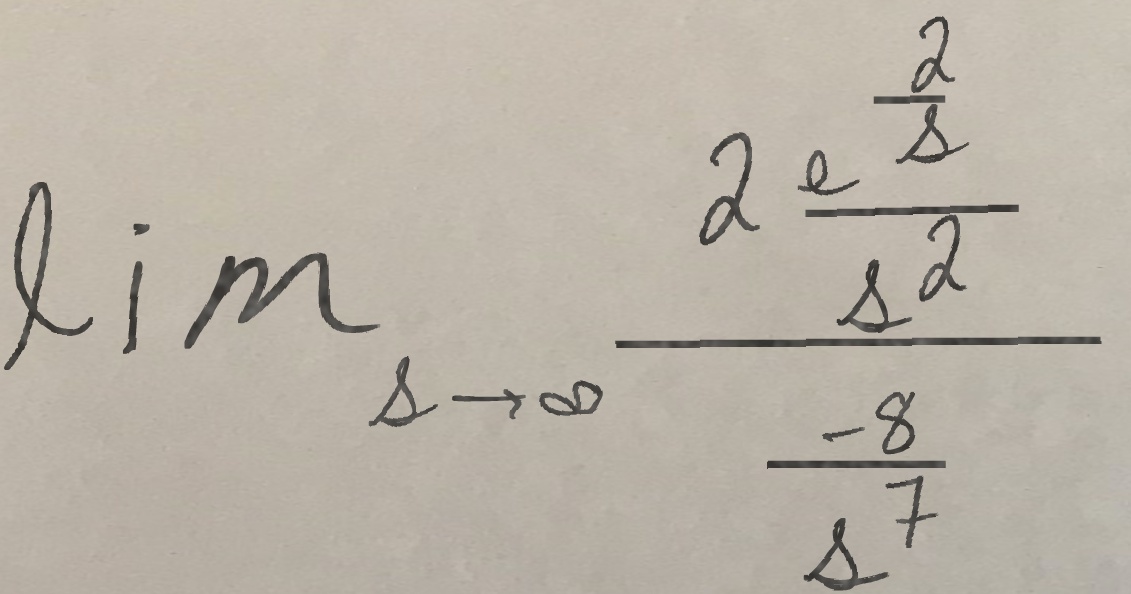 \lim_{s \to \infty} \frac{2 \frac{e^{\frac{2}{s}}}{s^2}}{\frac{-8}{s^7}}